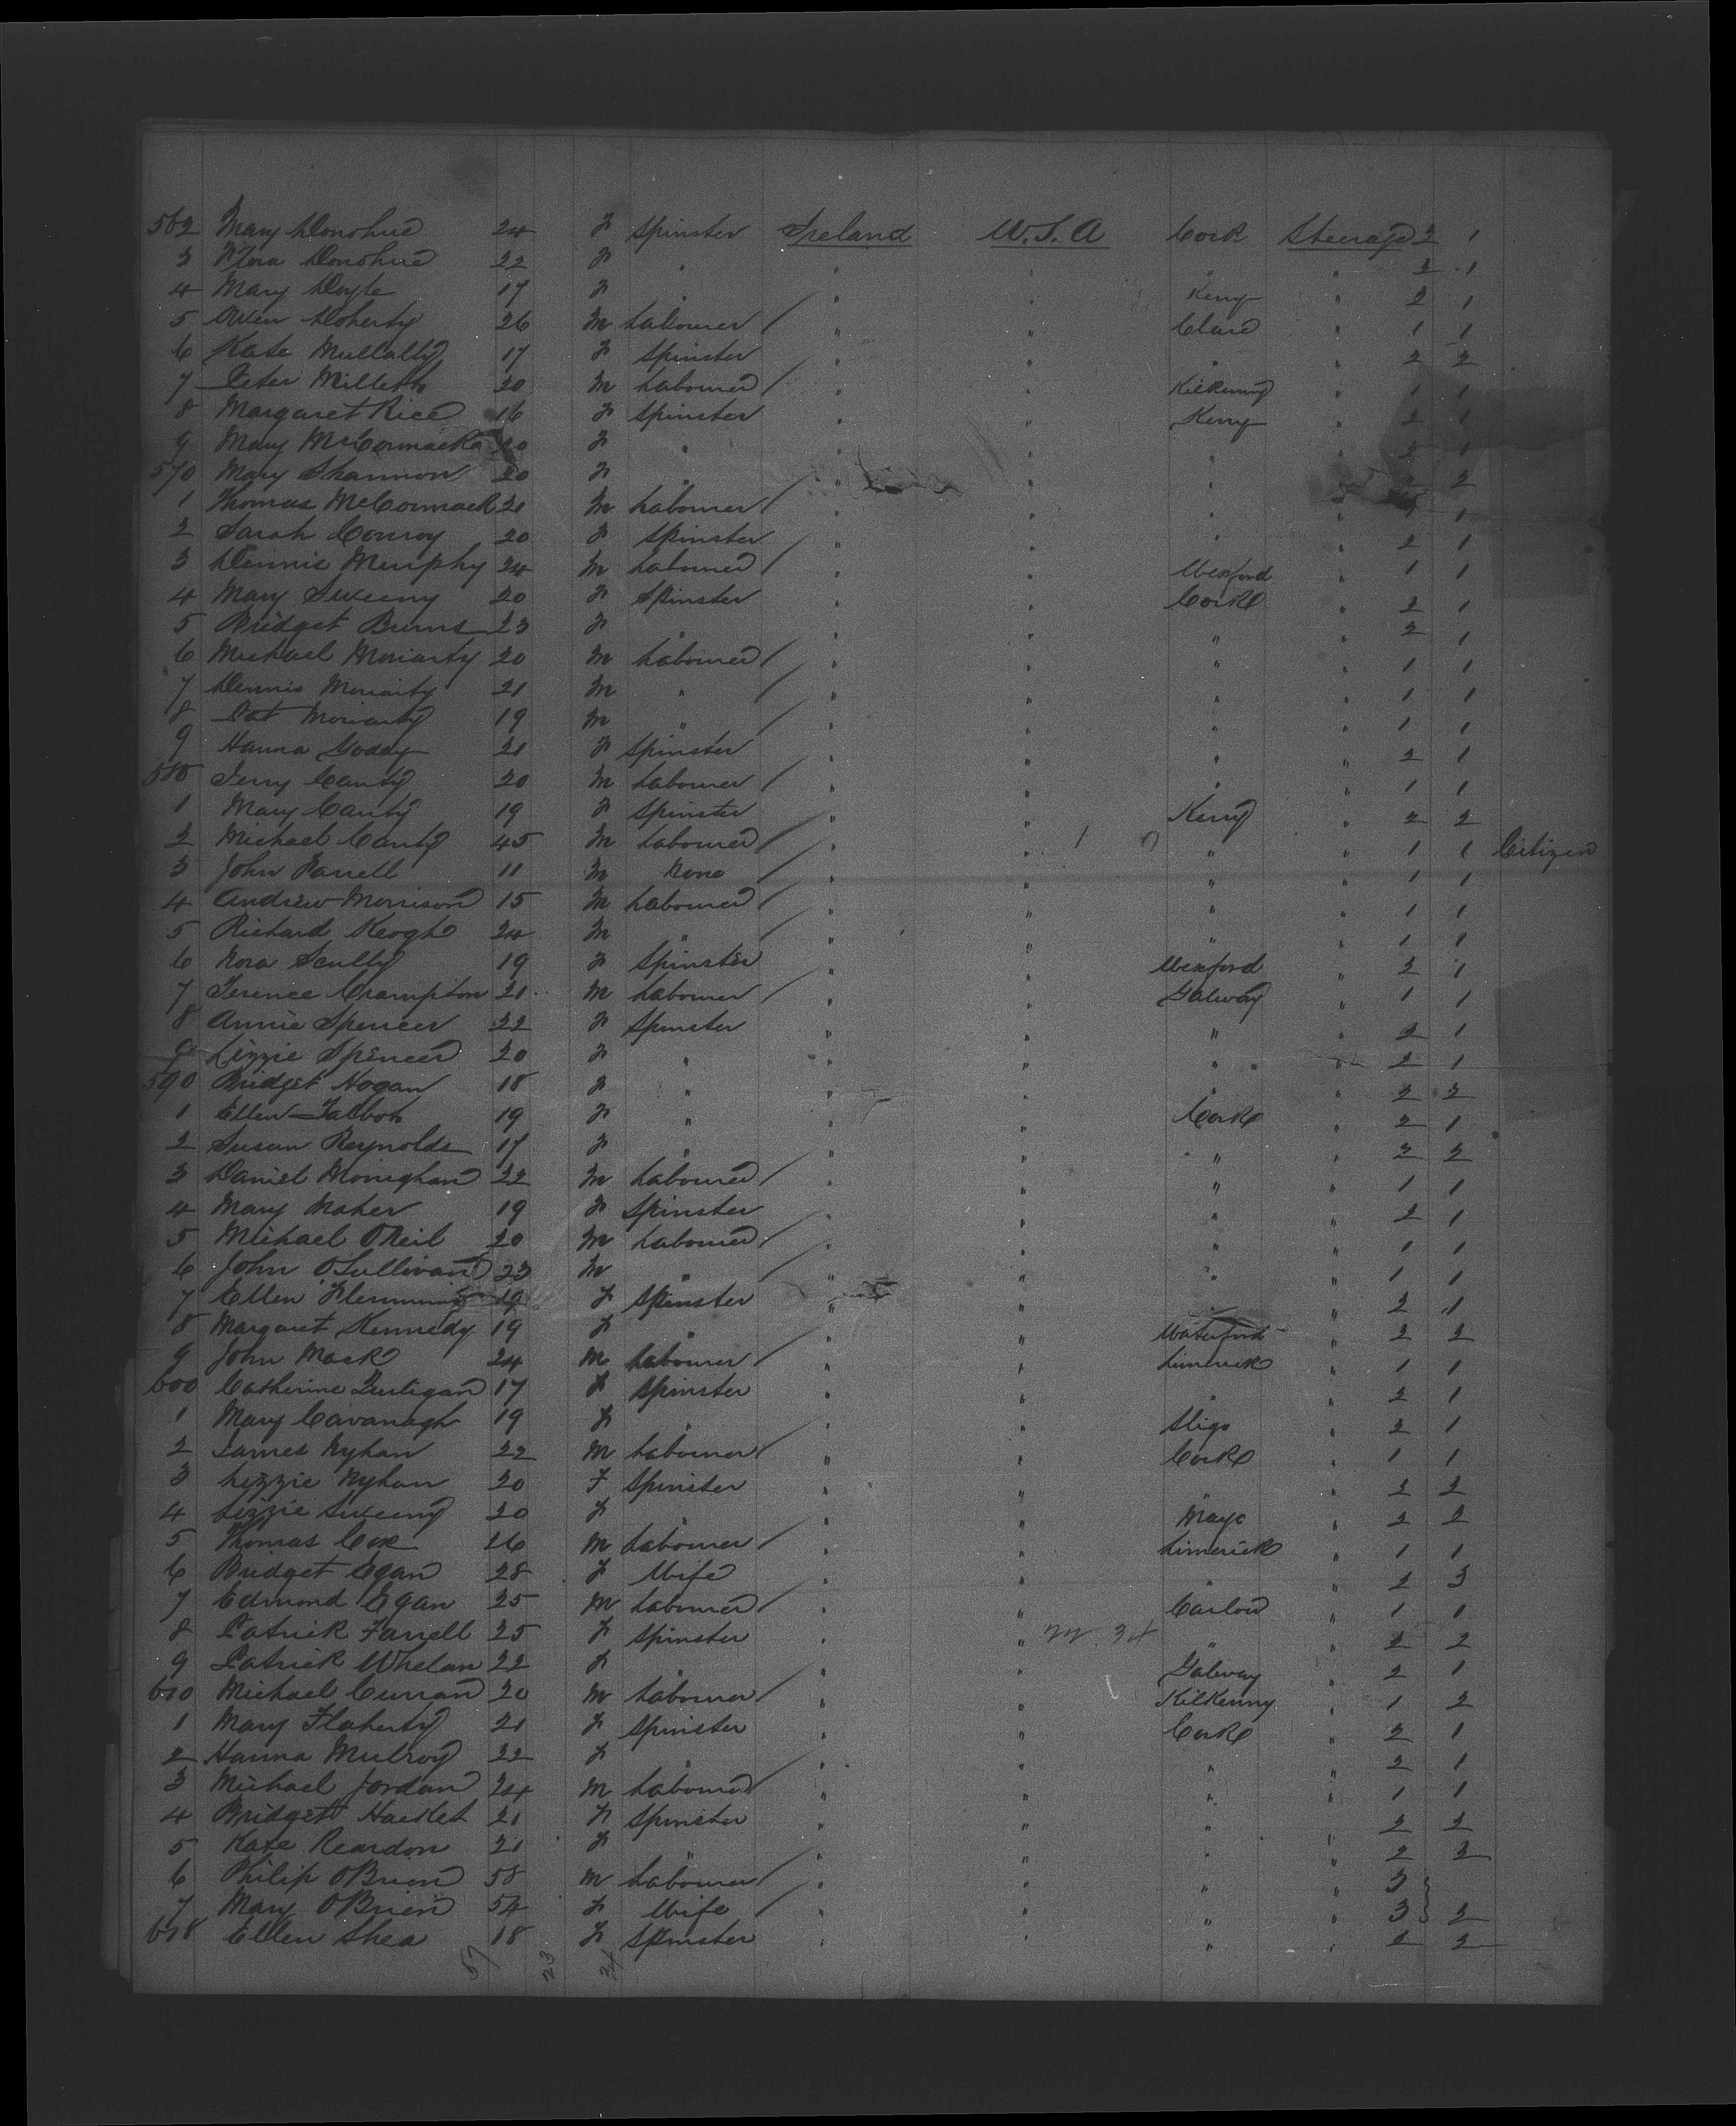 562 Mary Donohue 24 F Spinster Ireland U.S.A Cork Steerage 2 1
3 Nora Donohue 22 F " " " " " 2 1
4 Mary Doyle 17 F " " " Kerry " 2 1
5 Owen Doherty 26 M Labourer / " " Clare " 1 1
6 Kate Mullally 17 F Spinster " " " " 2 2
7 Peter Milleth 20 M Labourer / " " Kilkenny " 1 1
8 Margaret Rice 16 F Spinster " " Kerry " 2 1
9 Mary McCormack 20 F " " " " " 2 1
570 Mary Shannon 20 F " " " " " 2 2
1 Thomas McCormack 21 M Labourer / " " " " 1 1
2 Sarah Conroy 20 F Spinster " " " " 2 1
3 Dennis Murphy 24 M Labourer / " " Wexford " 1 1
4 Mary Sweeny 20 F Spinster " " Cork " 2 1
5 Bridget Burns 23 F " " " " " 2 1
6 Michael Moriarty 20 M Labourer / " " " " 1 1
7 Dennis Moriarty 21 M " / " " " " 1 1
8 Pat Moriarty 19 M " / " " " " 1 1
9 Hanna Godey 21 F Spinster " " " " 2 1
580 Jerry Canty 20 M Labourer / " " " " 1 1
1 Mary Canty 19 F Spinster " " Kerry " 2 2
2 Michael Canty 45 M Labourer / " " " " 1 1 Citizen
3 John Farrell 11 M None / " " " " 1 1
4 Andrew Morrison 15 M Labourer / " " " " 1 1
5 Richard Keogh 24 M " / " " " " 1 1
6 Nora Scully 19 F Spinster " " Wexford " 2 1
7 Terence Crampton 21 M Labourer / " " Galway " 1 1
8 Annie Spencer 22 F Spinster " " " " 2 1
9 Lizzie Spencer 20 F " " " " " 2 1
590 Bridget Hogan 18 F " " " " " 2 2
1 Ellen Talbot 19 F " " " Cork " 2 1
2 Susan Reynolds 17 F " " " " " 2 2
3 Daniel Monighan 22 M Labourer / " " " " 1 1
4 Mary Maher 19 F Spinster " " " " 2 1
5 Michael O'Neil 20 M Labourer / " " " " 1 1
6 John O'Sullivan 23 M " / " " " " 1 1
7 Ellen Flemming 19 F Spinster " " " " 2 1
8 Margaret Kennedy 19 F " " " Waterford " 2 2
9 John Mack 24 M Labourer / " " Limerick " 1 1
600 Catherine Quiligan 17 F Spinster " " " " 2 1
1 Mary Cavanagh 19 F " " " Sligo " 2 1
2 James Nyhan 22 M Labourer / " " Cork " 1 1
3 Lizzie Nyhan 20 F Spinster " " " " 2 2
4 Lizzie Sweeny 20 F " " " Mayo " 2 2
5 Thomas Cox 26 M Labourer / " " Limerick " 1 1
6 Bridget Egan 28 F Wife " " " " 2 3
7 Edmond Egan 25 M Labourer / " " Carlow " 1 1
8 Patrick Farrell 25 F Spinster " " " " 2 2
9 Patrick Whelan 22 F " " " Galway " 2 1
610 Michael Curran 20 M Labourer / " " Kilkenny " 1 2
1 Mary Flaherty 21 F Spinster " " Cork " 2 1
2 Hanna Mulroy 22 F " " " " " 2 1
3 Michael Jordan 24 M Labourer / " " " " 1 1
4 Bridget Hacket 21 F Spinster " " " " 2 2
5 Kate Reardon 21 F " " " " " 2 3
6 Philip O'Brien 58 M Labourer / " " " " 3
7 Mary O'Brien 54 F Wife / " " " " 3 2
618 Ellen Shea 18 F Spinster " " " " 2 2
57 23 34